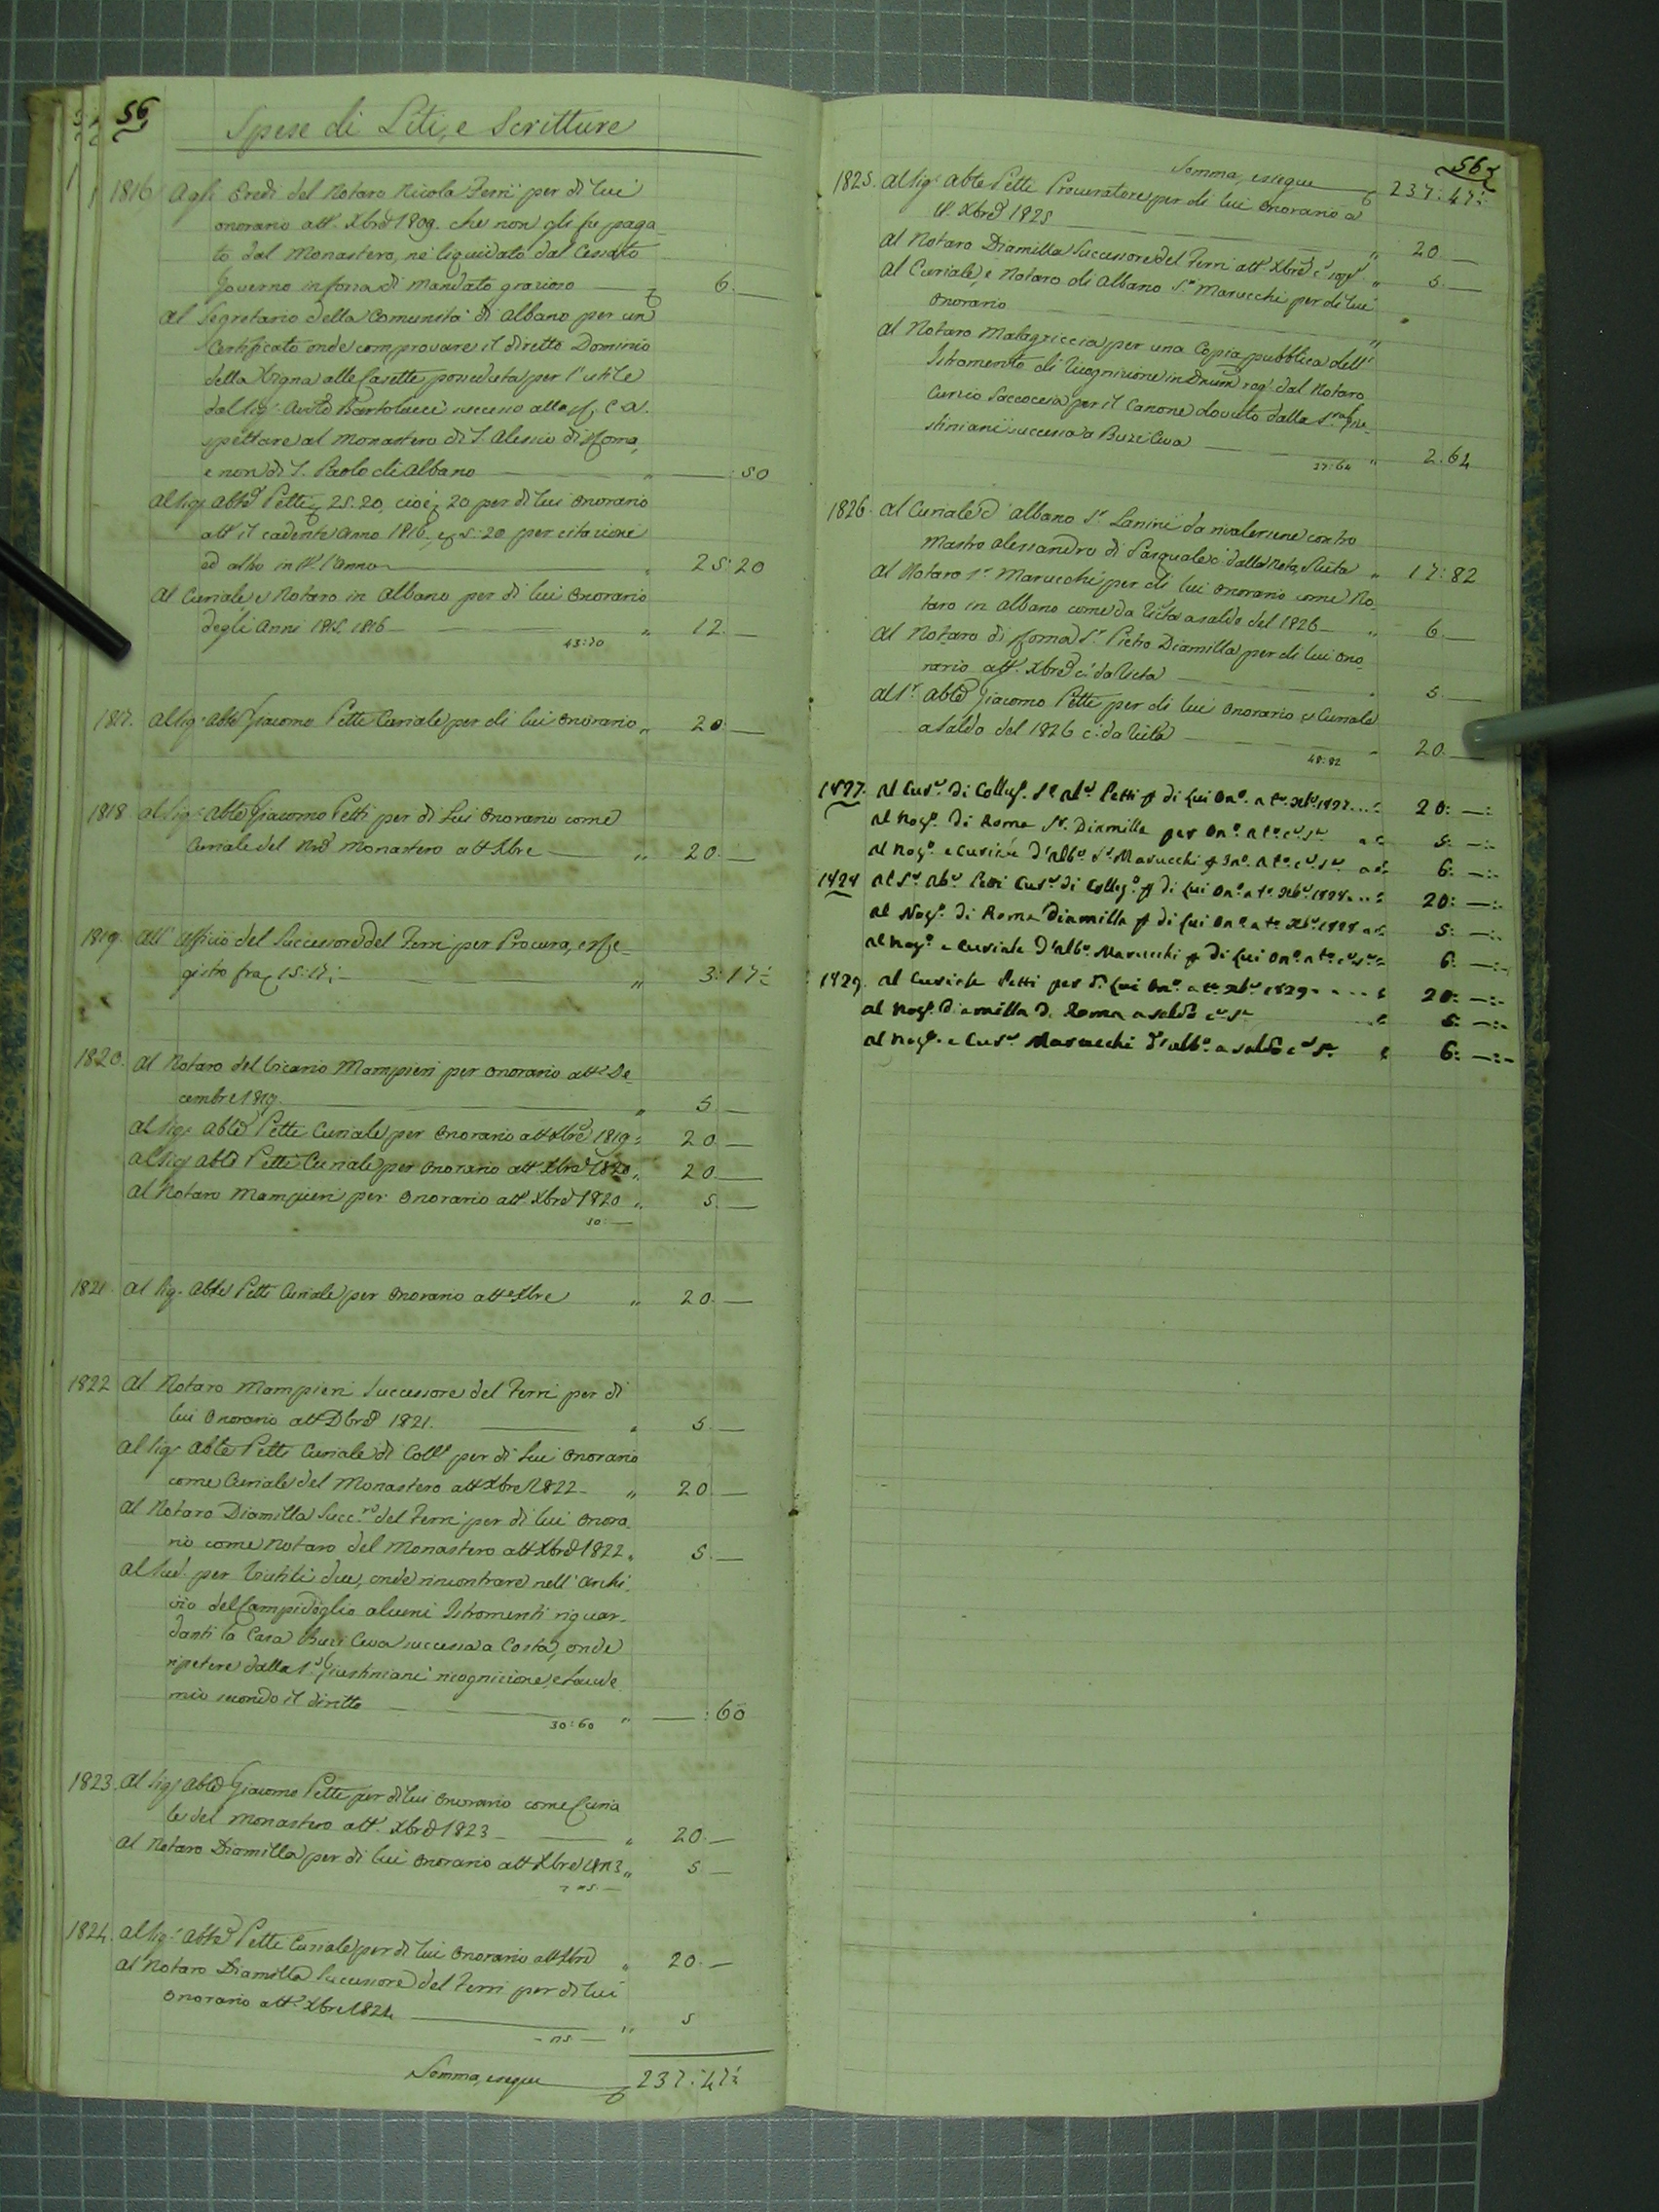 56
Spese di Liti, e Scritture
1816 Agli Eredi del Notaro Nicola Ferri per di lui
onorario att. Xbre 1809. che non gli fu paga-
to dal Monastero, nè liquidato dal Cessato
Governo in forza di Mandato grazioso 6.—
Al Segretario della Comunità di Albano per un
Certificato onde comprovare il diretto Dominio
della Vigna alle Casette posseduta per l'utile
dal Sig. Bartolucci
spettare al Monastero di S. Alessio di Roma,
e non di S. Paolo di Albano — : 50
Al Sig. Abte Petti 25:20, cioè 20 per di lui Onorario
att. il cadente Anno 1816, e 5:20 per citazioni
ed altro in tt. l'Anno 25:20
Al Curiale, e Notaro in Albano per di lui Onorario
degli Anni 1815, 1816 12.—
43:70
1817. Al Sig. Abte Giacomo Petti Curiale per di lui onorario 20.—
1818 Al Sig. Abte Giacomo Petti per di Lui Onorario come
Curiale del Nro Monastero att. Xbre 20.—
1819. All' Officio del Successore del Ferri per Procura, e Re-
gistro fra 3:17½
1820. Al Notaro del Vicario Mampieri per Onorario att. De-
cembre 1819. 5.—
Al Sig. Abte Petti Curiale per Onorario att. Xbre 1819 20.—
Al Sig. Abte Petti Curiale per Onorario att. Xbre 1820 20.—
Al Notaro Mampieri per Onorario att. Xbre 1820 5.—
50:—
1821. Al Sig. Abte Petti Curiale per Onorario att. Xbre 20.—
1822 Al Notaro Mampieri Successore del Ferri per di
lui Onorario att. Dbre 1821. 5.—
Al Sig. Abte Petti Curiale di Coll. per di Lui Onorario
come Curiale del Monastero att. Xbre 1822 20.—
Al Notaro Diamilla Succ.re del Ferri per di lui Onora-
rio come Notaro del Monastero att. Xbre 1822 5.—
Al Sud. per due, onde rincontrare nell'Archi-
vio del Campidoglio alcuni Istromenti riguar-
danti la Casa Buzi Ceva successa a Costa, onde
ripetere dalla S.ra Giustiniani ricognizione, e Laude-
mio secondo il diritto — : 60
30:60
1823. Al Sig. Abte Giacomo Petti per di lui Onorario come Curia-
le del Monastero att. Xbre 1823 20.—
Al Notaro Diamilla per di lui Onorario att. Xbre 1823 5—
25.—
1824. Al Sig. Abte Petti Curiale per di lui Onorario att. Xbre 20.—
Al Notaro Diamilla Successore del Ferri per di lui
Onorario att. Xbre 1824 5
25—
Somma, e segue 237:47½
56
Somma, e segue 237:47½
1825. Al Sig. Abte Petti Procuratore per di lui Onorario a
tt. Xbre 1825 20.—
Al Notaro Diamilla Successore del Ferri att. Xbre 5.—
Al Curiale, e Notaro di Albano S.r Marucchi per di lui
Onorario
Al Notaro Malagriccia per una Copia pubblica dell'
Istromento di ricognizione in Dnum rog. dal Notaro
Curzio Saccoccia per il Canone dovuto dalla S.ra Giu-
stiniani successa a Buzi Ceva 2:64
27:64
1826. Al Curiale d'Albano S.r Lanini da rivalersene contro
Mastro Alessandro di Pasquale c. dalla Nota, e Ricta 17:82
Al Notaro S.r Marucchi per di lui onorario come No-
taro in Albano come da Ricta a saldo del 1826 6.—
Al Notaro di Roma S.r Pietro Diamilla per di lui Ono-
rario att. Xbre c. da Ricta 5.—
Al S.r Abte Giacomo Petti per di lui Onorario di Curiale
a saldo del 1826 c. da Ricta 20.—
48:82
1827. Al Cur.e di Colleg. S.r Ab.e Petti p di Lui On.o a tt.o Xb.e 1827 20:—:
Al Not.o di Roma S.r Diamilla per On.o a tt.o c.e S.a 5:—:
Al Not.o e Curiale d'Alb.o S.r Marucchi p On.o a tt.o c.e S.a 6:—:
1828 Al S.r Ab.e Petti Cur.e di Colleg.o p di Lui On.o a tt.o Xb.e 1828 20:—:
Al Not.o di Roma Diamilla p di Lui On.o a tt.o Xb.e 1828 5:—:
Al Not.o e Curiale d'Alb.o Marucchi p di Lui On.o a tt.o c.e S.a 6:—:
1829. Al Curiale Petti per di Lui On.o a tt.o Xb.e 1829 20:—:
Al Not.o Diamilla di Roma a saldo c.e S.a 5:—:
Al Not.o e Cur.e Marucchi d'Alb.o a saldo c.e S.a 6:—: